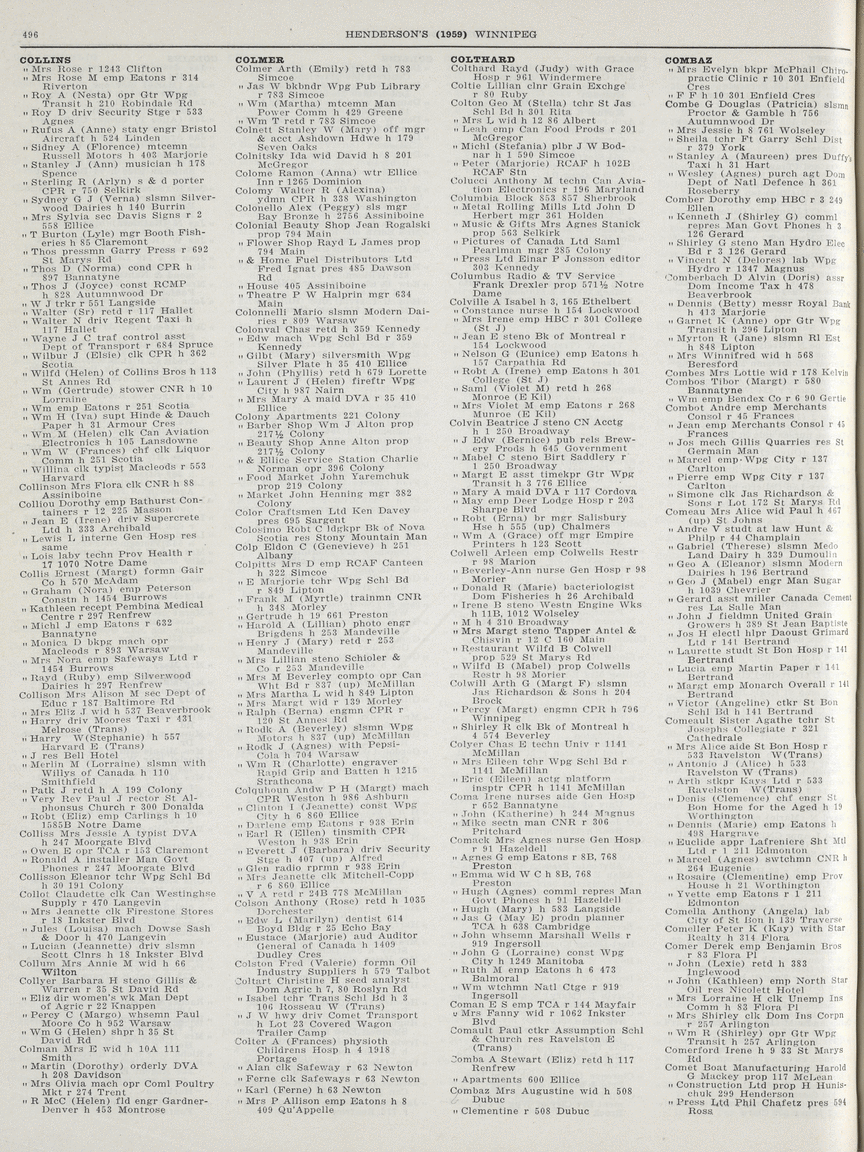 496
HENDERSON'S (1959) WINNIPEG
COLLINS
" Mrs Rose r 1243 Clifton
" Mrs Rose M emp Eatons r 314
Riverton
" Roy A (Nesta) opr Gtr Wpg
Transit h 210 Robindale Rd
" Roy D driv Security Stge r 533
Agnes
" Rufus A (Anne) staty engr Bristol
Aircraft h 524 Linden
" Sidney A (Florence) mtcemn
Russell Motors h 403 Marjorie
" Stanley J (Ann) musician h 178
Spence
" Sterling R (Arlyn) s & d porter
CPR r 750 Selkirk
" Sydney G J (Verna) slsmn Silver-
wood Dairies h 140 Burrin
" Mrs Sylvia sec Davis Signs r 2
558 Ellice
" T Burton (Lyle) mgr Booth Fish-
eries h 85 Claremont
" Thos pressmn Garry Press r 692
St Marys Rd
" Thos D (Norma) cond CPR h
897 Bannatyne
" Thos J (Joyce) const RCMP
h 828 Autumnwood Dr
" W J trkr r 551 Langside
" Walter (Sr) retd r 117 Hallet
" Walter N driv Regent Taxi h
117 Hallet
" Wayne J C traf control asst
Dept of Transport r 684 Spruce
" Wilbur J (Elsie) clk CPR h 362
Scotia
" Wilfd (Helen) of Collins Bros h 113
St Annes Rd
" Wm (Gertrude) stower CNR h 10
Lorraine
" Wm emp Eatons r 251 Scotia
" Wm H (Iva) supt Hinde & Dauch
Paper h 31 Armour Cres
" Wm M (Helen) clk Can Aviation
Electronics h 105 Lansdowne
" Wm W (Frances) chf clk Liquor
Comm h 251 Scotia
" Willina clk typist Macleods r 553
Harvard
Collinson Mrs Flora clk CNR h 88
Assiniboine
Colliou Dorothy emp Bathurst Con-
tainers r 12 225 Masson
" Jean E (Irene) driv Supercrete
Ltd h 333 Archibald
" Lewis L interne Gen Hosp res
same
" Lois laby techn Prov Health r
17 1070 Notre Dame
Collis Ernest (Margt) formn Gair
Co h 570 McAdam
" Graham (Nora) emp Peterson
Constn h 1454 Burrows
" Kathleen recept Pembina Medical
Centre r 297 Renfrew
" Michl J emp Eatons r 632
Bannatyne
" Monica D bkpg mach opr
Macleods r 893 Warsaw
" Mrs Nora emp Safeways Ltd r
1454 Burrows
" Rayd (Ruby) emp Silverwood
Dairies h 297 Renfrew
Collison Mrs Alison M sec Dept of
Educ r 187 Baltimore Rd
" Mrs Eliz J wid h 537 Beaverbrook
" Harry driv Moores Taxi r 431
Melrose (Trans)
" Harry W(Stephanie) h 557
Harvard E (Trans)
" J res Bell Hotel
" Merlin M (Lorraine) slsmn with
Willys of Canada h 110
Smithfield
" Patk J retd h A 199 Colony
" Very Rev Paul J rector St Al-
phonsus Church r 300 Donalda
" Robt (Eliz) emp Carlings h 10
1585B Notre Dame
Colliss Mrs Jessie A typist DVA
h 247 Moorgate Blvd
" Owen E opr TCA r 153 Claremont
" Ronald A installer Man Govt
Phones r 247 Moorgate Blvd
Collisson Eleanor tchr Wpg Schl Bd
h 30 191 Colony
Collot Claudette clk Can Westinghse
Supply r 470 Langevin
" Mrs Jeanette clk Firestone Stores
r 18 Inkster Blvd
" Jules (Louisa) mach Dowse Sash
& Door h 470 Langevin
" Lucian (Jeannette) driv slsmn
Scott Clnrs h 18 Inkster Blvd
Collum Mrs Annie M wid h 66
Wilton
Collyer Barbara H steno Gillis &
Warren r 35 St David Rd
" Eliz dir women's wk Man Dept
of Agric r 22 Knappen
" Percy C (Margo) whsemn Paul
Moore Co h 952 Warsaw
" Wm G (Helen) shpr h 35 St
David Rd
Colman Mrs E wid h 10A 111
Smith
" Martin (Dorothy) orderly DVA
h 208 Davidson
" Mrs Olivia mach opr Coml Poultry
Mkt r 274 Trent
" R McC (Helen) fld engr Gardner-
Denver h 453 Montrose
COLMER
Colmer Arth (Emily) retd h 783
Simcoe
" Jas W bkbndr Wpg Pub Library
r 783 Simcoe
" Wm (Martha) mtcemn Man
Power Comm h 429 Greene
" Wm T retd r 783 Simcoe
Colnett Stanley W (Mary) off mgr
& acct Ashdown Hdwe h 179
Seven Oaks
Colnitsky Ida wid David h 8 201
McGregor
Colome Ramon (Anna) wtr Ellice
Inn r 1265 Dominion
Colomy Walter R (Alexina)
ydmn CPR h 338 Washington
Colonello Alex (Peggy) sls mgr
Bay Bronze h 2756 Assiniboine
Colonial Beauty Shop Jean Rogalski
prop 794 Main
" Flower Shop Rayd L James prop
794 Main
" & Home Fuel Distributors Ltd
Fred Ignat pres 485 Dawson
Rd
" House 405 Assiniboine
" Theatre P W Halprin mgr 634
Main
Colonnelli Mario slsmn Modern Dai-
ries h 809 Warsaw
Colonval Chas retd h 359 Kennedy
" Edw mach Wpg Schl Bd r 359
Kennedy
" Gilbt (Mary) silversmith Wpg
Silver Plate h 35 410 Ellice
" John (Phyllis) retd h 679 Lorette
" Laurent J (Helen) fireftr Wpg
City h 987 Nairn
" Mrs Mary A maid DVA r 35 410
Ellice
Colony Apartments 221 Colony
" Barber Shop Wm J Alton prop
217½ Colony
" Beauty Shop Anne Alton prop
217½ Colony
" & Ellice Service Station Charlie
Norman opr 396 Colony
" Food Market John Yaremchuk
prop 219 Colony
" Market John Henning mgr 382
Colony
Color Craftsmen Ltd Ken Davey
pres 695 Sargent
Colosimo Robt C ldgkpr Bk of Nova
Scotia res Stony Mountain Man
Colp Eldon C (Genevieve) h 251
Albany
Colpitts Mrs D emp RCAF Canteen
h 322 Simcoe
" E Marjorie tchr Wpg Schl Bd
r 849 Lipton
" Frank M (Myrtle) trainmn CNR
h 348 Morley
" Gertrude h 19 661 Preston
" Harold A (Lillian) photo engr
Brigdens h 253 Mandeville
" Henry J (Mary) retd r 253
Mandeville
" Mrs Lillian steno Schioler &
Co r 253 Mandeville
" Mrs M Beverley compto opr Can
Wht Bd r 837 (up) McMillan
" Mrs Martha L wid h 849 Lipton
" Mrs Margt wid r 139 Morley
" Ralph (Berna) engmn CPR r
120 St Annes Rd
" Rodk A (Beverley) slsmn Wpg
Motors h 837 (up) McMillan
" Rodk J (Agnes) with Pepsi-
Cola h 704 Warsaw
" Wm R (Charlotte) engraver
Rapid Grip and Batten h 1215
Strathcona
Colquhoun Andw P H (Margt) mach
CPR Weston h 986 Ashburn
" Clinton I (Jeanette) const Wpg
City h 6 860 Ellice
" Darlene emp Eatons r 938 Erin
" Earl R (Ellen) tinsmith CPR
Weston h 938 Erin
" Everett J (Barbara) driv Security
Stge h 407 (up) Alfred
" Glen radio rprmn r 938 Erin
" Mrs Jeanette clk Mitchell-Copp
r 6 860 Ellice
" V A retd r 24B 778 McMillan
Colson Anthony (Rose) retd h 1035
Dorchester
" Edw L (Marilyn) dentist 614
Boyd Bldg r 25 Echo Bay
" Eustace (Marjorie) aud Auditor
General of Canada h 1409
Dudley Cres
Colston Fred (Valerie) formn Oil
Industry Suppliers h 579 Talbot
Coltart Christine H seed analyst
Dom Agric h 7, 80 Roslyn Rd
" Isabel tchr Trans Schl Bd h 3
106 Rosseau W (Trans)
" J W hwy driv Comet Transport
h Lot 23 Covered Wagon
Trailer Camp
Colter A (Frances) physioth
Childrens Hosp h 4 1918
Portage
" Alan clk Safeway r 63 Newton
" Ferne clk Safeways r 63 Newton
" Karl (Ferne) h 63 Newton
" Mrs P Allison emp Eatons h 8
409 Qu'Appelle
COLTHARD
Colthard Rayd (Judy) with Grace
Hosp r 961 Windermere
Coltie Lillian clnr Grain Exchge
r 80 Ruby
Colton Geo M (Stella) tchr St Jas
Schl Bd h 301 Rita
" Mrs L wid h 12 86 Albert
" Leah emp Can Food Prods r 201
McGregor
" Michl (Stefania) plbr J W Bod-
nar h 1 590 Simcoe
" Peter (Marjorie) RCAF h 102B
RCAF Stn
Colucci Anthony M techn Can Avia-
tion Electronics r 196 Maryland
Columbia Block 853 857 Sherbrook
" Metal Rolling Mills Ltd John D
Herbert mgr 361 Holden
" Music & Gifts Mrs Agnes Stanick
prop 563 Selkirk
" Pictures of Canada Ltd Saml
Pearlman mgr 285 Colony
" Press Ltd Einar P Jonsson editor
303 Kennedy
Columbus Radio & TV Service
Frank Drexler prop 571½ Notre
Dame
Colville A Isabel h 3, 165 Ethelbert
" Constance nurse h 154 Lockwood
" Mrs Irene emp HBC r 301 College
(St J)
" Jean E steno Bk of Montreal r
154 Lockwood
" Nelson G (Eunice) emp Eatons h
157 Carpathia Rd
" Robt A (Irene) emp Eatons h 301
College (St J)
" Saml (Violet M) retd h 268
Monroe (E Kil)
" Mrs Violet M emp Eatons r 268
Munroe (E Kil)
Colvin Beatrice J steno CN Acctg
h 1 250 Broadway
" J Edw (Bernice) pub rels Brew-
ery Prods h 645 Government
" Mabel C steno Birt Saddlery r
1 250 Broadway
" Margt E asst timekpr Gtr Wpg
Transit h 3 776 Ellice
" Mary A maid DVA r 117 Cordova
" May emp Deer Lodge Hosp r 203
Sharpe Blvd
" Robt (Erna) br mgr Salisbury
Hse h 555 (up) Chalmers
" Wm A (Grace) off mgr Empire
Printers h 123 Scott
Colwell Arleen emp Colwells Restr
r 98 Marion
" Beverley-Ann nurse Gen Hosp r 98
Morier
" Donald R (Marie) bacteriologist
Dom Fisheries h 26 Archibald
" Irene B steno Westn Engine Wks
h 11B, 1012 Wolseley
" M h 4 310 Broadway
" Mrs Margt steno Tapper Antel &
Chisvin r 12 C 160 Main
" Restaurant Wilfd B Colwell
prop 529 St Marys Rd
" Wilfd B (Mabel) prop Colwells
Restr h 98 Morier
Colwill Arth G (Margt F) slsmn
Jas Richardson & Sons h 204
Brock
" Percy (Margt) engmn CPR h 796
Winnipeg
" Shirley R clk Bk of Montreal h
4 574 Beverley
Colyer Chas E techn Univ r 1141
McMillan
" Mrs Eileen tchr Wpg Schl Bd r
1141 McMillan
" Eric (Eileen) actg platform
insptr CPR h 1141 McMillan
Coma Irene nurses aide Gen Hosp
r 652 Bannatyne
" John (Katherine) h 244 Magnus
" Mike sectn man CNR r 306
Pritchard
Comack Mrs Agnes nurse Gen Hosp
r 91 Hazeldell
" Agnes G emp Eatons r 8B, 768
Preston
" Emma wid W C h 8B, 768
Preston
" Hugh (Agnes) comml repres Man
Govt Phones h 91 Hazeldell
" Hugh (Mary) h 583 Langside
" Jas G (May E) prodn planner
TCA h 638 Cambridge
" John whsemn Marshall Wells r
919 Ingersoll
" John G (Lorraine) const Wpg
City h 1249 Manitoba
" Ruth M emp Eatons h 6 473
Balmoral
" Wm wtchmn Natl Ctge r 919
Ingersoll
Coman E emp TCA r 144 Mayfair
" Mrs Fanny wid r 1062 Inkster
Blvd
Comault Paul ctkr Assumption Schl
& Church res Ravelston E
(Trans)
Comba A Stewart (Eliz) retd h 117
Renfrew
" Apartments 600 Ellice
Combaz Mrs Augustine wid h 508
Dubuc
" Clementine r 508 Dubuc
COMBAZ
" Mrs Evelyn bkpr McPhail Chiro-
practic Clinic r 10 301 Enfield
Cres
" F F h 10 301 Enfield Cres
Combe G Douglas (Patricia) slsmn
Proctor & Gamble h 756
Autumnwood Dr
" Mrs Jessie h 8 761 Wolseley
" Sheila tchr Ft Garry Schl Dist
r 379 York
" Stanley A (Maureen) pres Duffy's
Taxi h 31 Hart
" Wesley (Agnes) purch agt Dom
Dept of Natl Defence h 361
Roseberry
Comber Dorothy emp HBC r 3 249
Ellen
" Kenneth J (Shirley G) comml
repres Man Govt Phones h 3
126 Gerard
" Shirley G steno Man Hydro Elec
Bd r 3 126 Gerard
" Vincent N (Delores) lab Wpg
Hydro r 1347 Magnus
Comberbach D Alvin (Doris) assr
Dom Income Tax h 478
Beaverbrook
" Dennis (Betty) messr Royal Bank
h 413 Marjorie
" Garnet K (Anne) opr Gtr Wpg
Transit h 296 Lipton
" Myrton R (Jane) slsmn Rl Est
h 848 Lipton
" Mrs Winnifred wid h 568
Beresford
Combes Mrs Lottie wid r 178 Kelvin
Combos Tibor (Margt) r 580
Bannatyne
" Wm emp Bendex Co r 6 90 Gertie
Combot Andre emp Merchants
Consol r 45 Frances
" Jean emp Merchants Consol r 45
Frances
" Jos mech Gillis Quarries res St
Germain Man
" Marcel emp Wpg City r 137
Carlton
" Pierre emp Wpg City r 137
Carlton
" Simone clk Jas Richardson &
Sons r Lot 172 St Marys Rd
Comeau Mrs Alice wid Paul h 467
(up) St Johns
" Andre V studt at law Hunt &
Philp r 44 Champlain
" Gabriel (Therese) slsmn Medo
Land Dairy h 339 Dumoulin
" Geo A (Eleanor) slsmn Modern
Dairies h 196 Bertrand
" Geo J (Mabel) engr Man Sugar
h 1039 Chevrier
" Gerard asst miller Canada Cement
res La Salle Man
" John J fieldmn United Grain
Growers h 389 St Jean Baptiste
" Jos H electl hlpr Daoust Grimard
Ltd r 141 Bertrand
" Laurette studt St Bon Hosp r 141
Bertrand
" Lucia emp Martin Paper r 141
Bertrand
" Margt emp Monarch Overall r 141
Bertrand
" Victor (Angeline) ctkr St Bon
Schl Bd h 141 Bertrand
Comeault Sister Agathe tchr St
Josephs Collegiate r 321
Cathedrale
" Mrs Alice aide St Bon Hosp r
533 Ravelston W(Trans)
" Antonio J (Alice) h 533
Ravelston W (Trans)
" Arth stkpr Kays Ltd r 533
Ravelston W(Trans)
" Denis (Clemence) chf engr St
Bon Home for the Aged h 19
Worthington
" Dennis (Marie) emp Eatons h
498 Hargrave
" Euclide appr Lafreniere Sht Mtl
Ltd r 1 211 Edmonton
" Marcel (Agnes) swtchmn CNR h
264 Eugenie
" Rosaire (Clementine) emp Prov
House h 21 Worthington
" Yvette emp Eatons r 1 211
Edmonton
Comella Anthony (Angela) lab
City of St Bon h 139 Traverse
Comeller Peter K (Kay) with Star
Realty h 314 Flora
Comer Derek emp Benjamin Bros
r 83 Flora Pl
" John (Lexie) retd h 383
Inglewood
" John (Kathleen) emp North Star
Oil res Nicolett Hotel
" Mrs Lorraine H clk Unemp Ins
Comm h 83 Flora Pl
" Mrs Shirley clk Dom Ins Corpn
r 257 Arlington
" Wm R (Shirley) opr Gtr Wpg
Transit h 257 Arlington
Comerford Irene h 9 33 St Marys
Rd
Comet Boat Manufacturing Harold
G Mackey prop 117 McLean
" Construction Ltd prop H Hunis-
chuk 299 Henderson
" Press Ltd Phil Chafetz pres 594
Ross